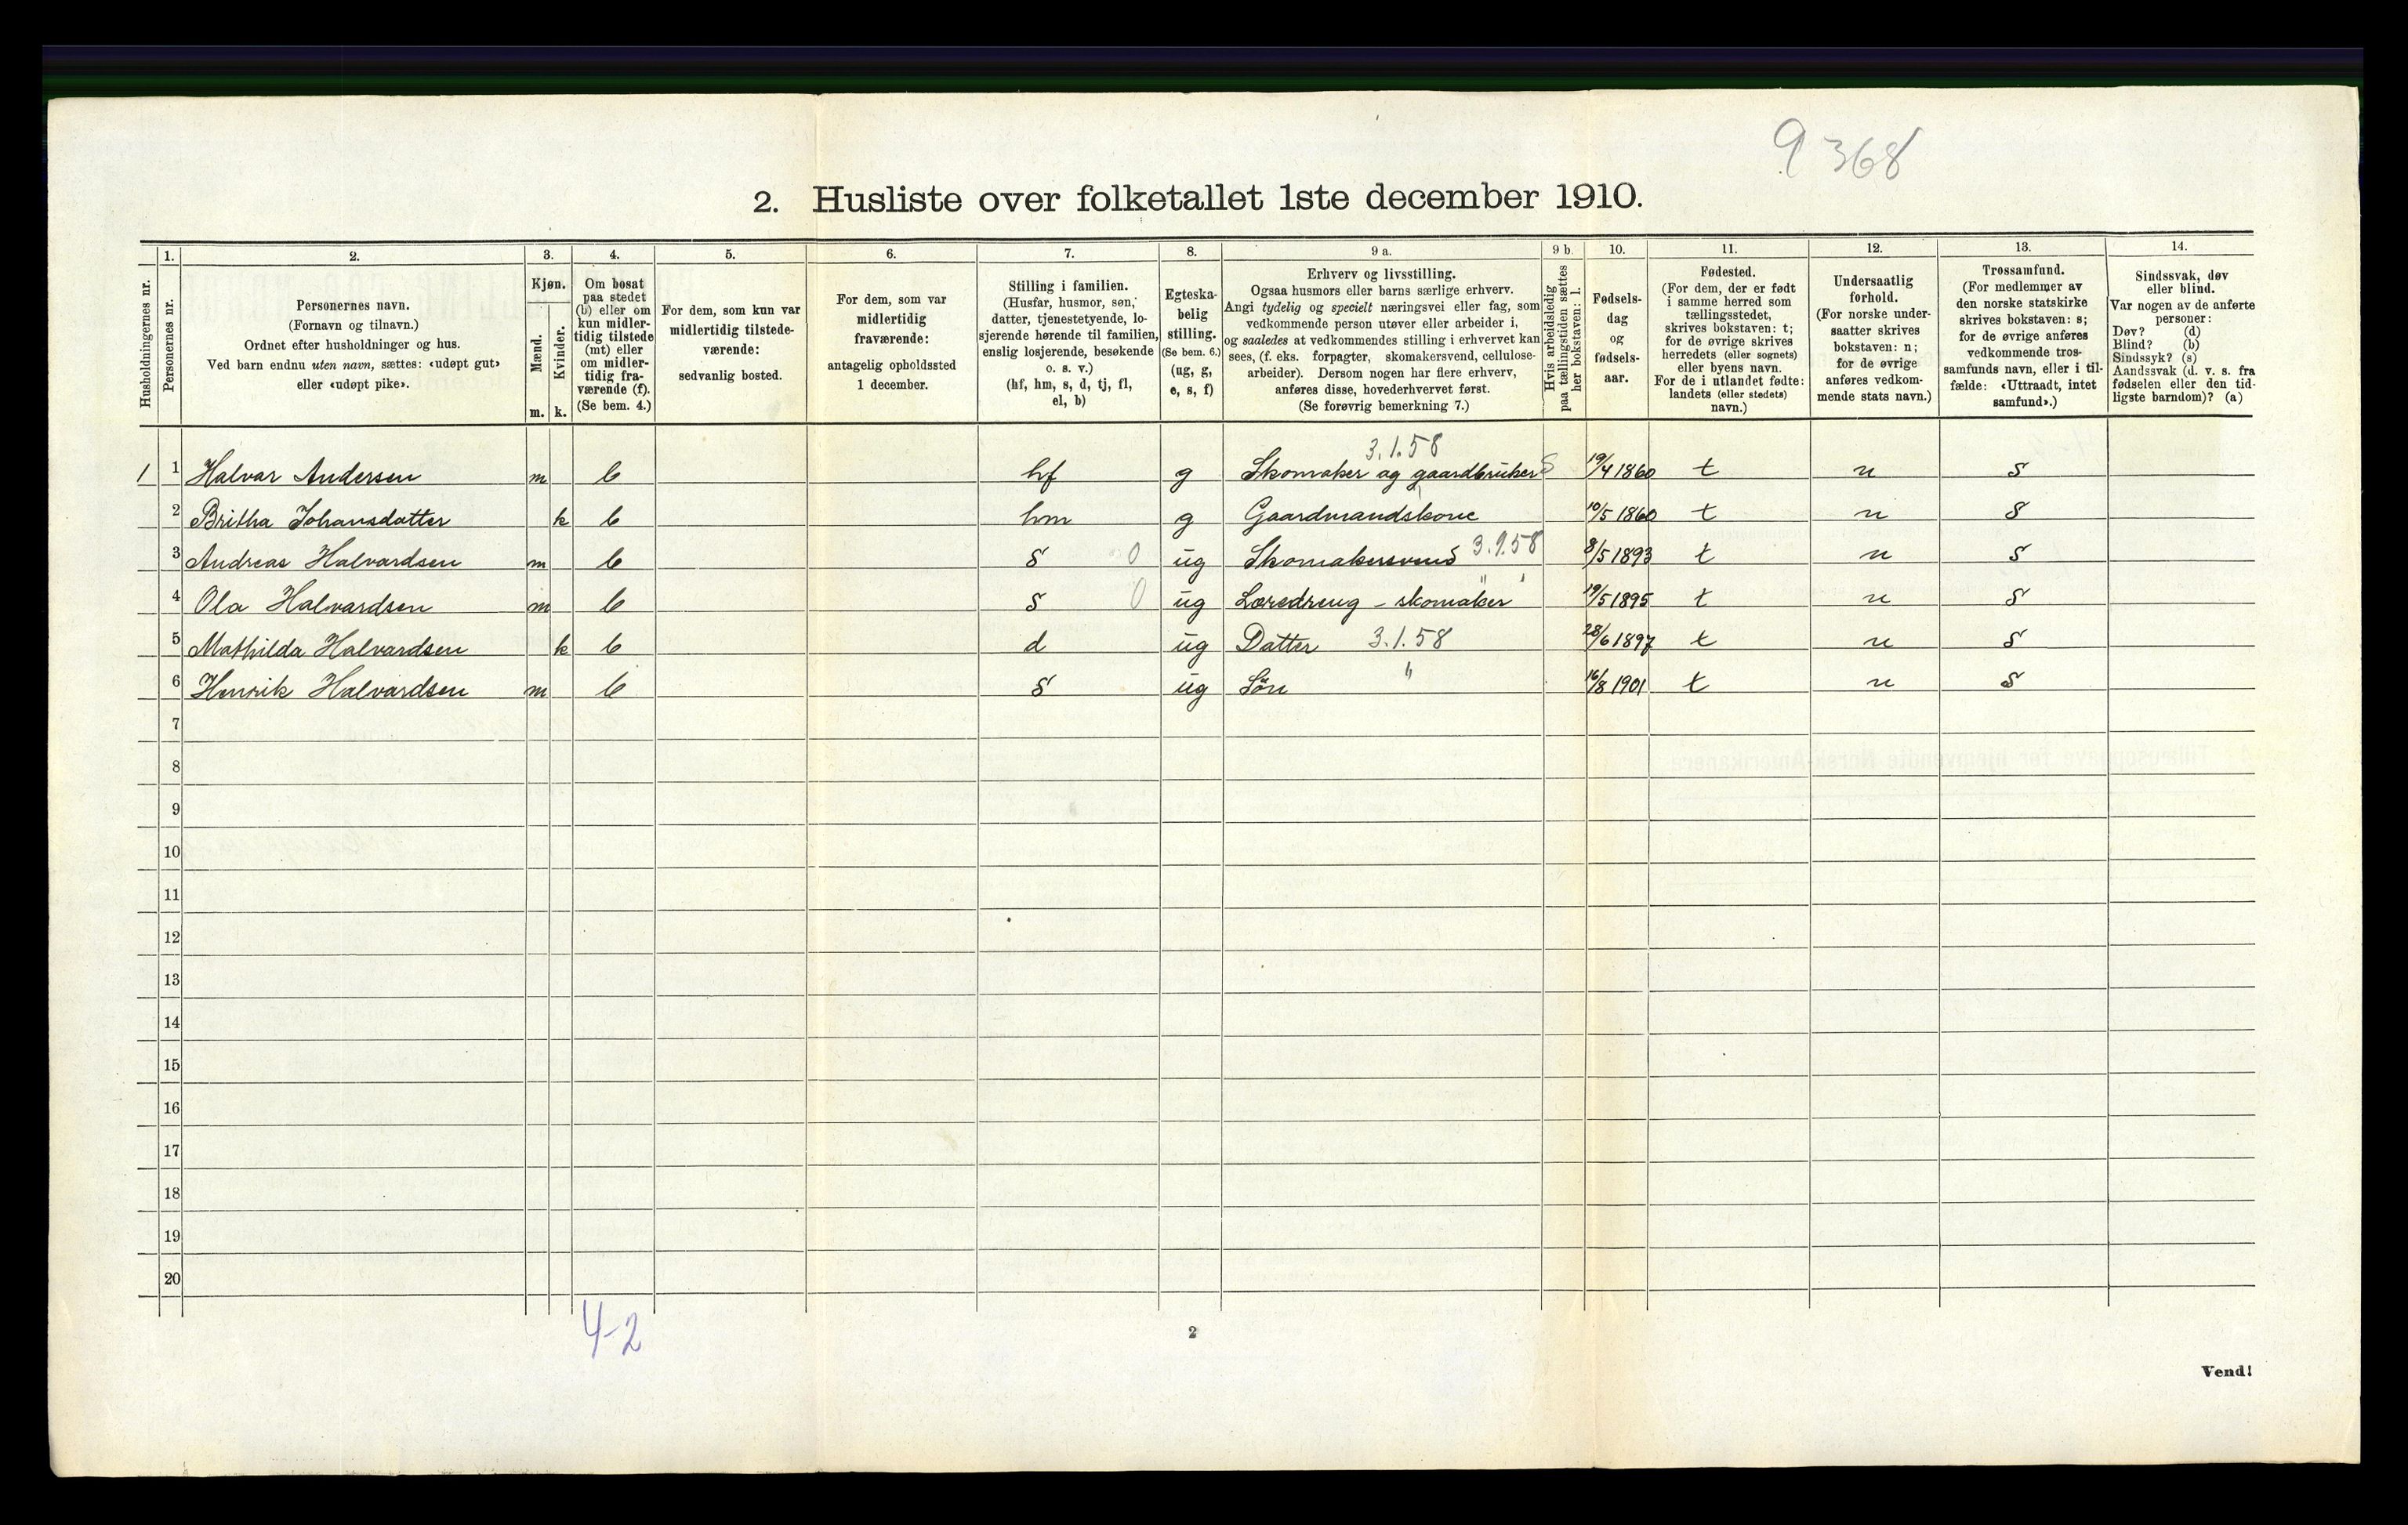 9 368
2. Husliste over folketallet 1ste december 1910.
Husholdningernes nr.
1.
Personernes nr.
2.
Personernes navn.
(Fornavn og tilnavn.)
Ordnet efter husholdninger og hus.
Ved barn endnu uten navn, sættes: «udøpt gut»
eller «udøpt pike».
3.
Kjøn.
Mænd.
Kvinder.
m. k.
4.
Om bosat
paa stedet
(b) eller om
kun midler-
tidig tilstede
(mt) eller
om midler-
tidig fra-
værende (f).
(Se bem. 4.)
5.
For dem, som kun var
midlertidig tilstede-
værende:
sedvanlig bosted.
6.
For dem, som var
midlertidig
fraværende:
antagelig opholdssted
1 december.
7.
Stilling i familien.
(Husfar, husmor, søn,
datter, tjenestetyende, lo-
sjerende hørende til familien,
enslig losjerende, besøkende
o. s. v.)
(hf, hm, s, d, tj, fl,
el, b)
8.
Egteska-
belig
stilling.
(Se bem. 6.)
(ug, g,
e, s, f)
9 a.
Erhverv og livsstilling.
Ogsaa husmors eller barns særlige erhverv.
Angi tydelig og specielt næringsvei eller fag, som
vedkommende person utøver eller arbeider i,
og saaledes at vedkommendes stilling i erhvervet kan
sees, (f. eks. forpagter, skomakersvend, cellulose-
arbeider). Dersom nogen har flere erhverv,
anføres disse, hovederhvervet først.
(Se forøvrig bemerkning 7.)
9 b.
Hvis arbeidsledig
paa tællingstiden sættes
her bokstaven: l.
10.
Fødsels-
dag
og
fødsels-
aar.
11.
Fødested.
(For dem, der er født
i samme herred som
tællingsstedet,
skrives bokstaven: t;
for de øvrige skrives
herredets (eller sognets)
eller byens navn.
For de i utlandet fødte:
landets (eller stedets)
navn.)
12.
Undersaatlig
forhold.
(For norske under-
saatter skrives
bokstaven: n;
for de øvrige
anføres vedkom-
mende stats navn.)
13.
Trossamfund.
(For medlemmer av
den norske statskirke
skrives bokstaven: s;
for de øvrige anføres
vedkommende tros-
samfunds navn, eller i til-
fælde: «Uttraadt, intet
samfund».)
14.
Sindssvak, døv
eller blind.
Var nogen av de anførte
personer:
Døv? (d)
Blind? (b)
Sindssyk? (s)
Aandssvak (d. v. s. fra
fødselen eller den tid-
ligste barndom)? (a)
3.1.58
1 1 Halvar Andersen m b hf g Skomaker og gaardbruker S 19/4 1860 t n s
2 Britha Johansdatter k b hm g Gaardmandskone 10/5 1860 t n s
3 Andreas Halvardsen m b s 0 ug Skomakersvend 3.1.58 8/5 1893 t n s
4 Ola Halvardsen m b s 0 ug Læredreng - skomaker " 19/5 1895 t n s
5 Mathilda Halvardsen k b d ug Datter 3.1.58 28/6 1897 t n s
6 Henrik Halvardsen m b s ug Søn " 16/8 1901 t n s
7
8
9
10
11
12
13
14
15
16
17
18
19
20
4-2
2
Vend!